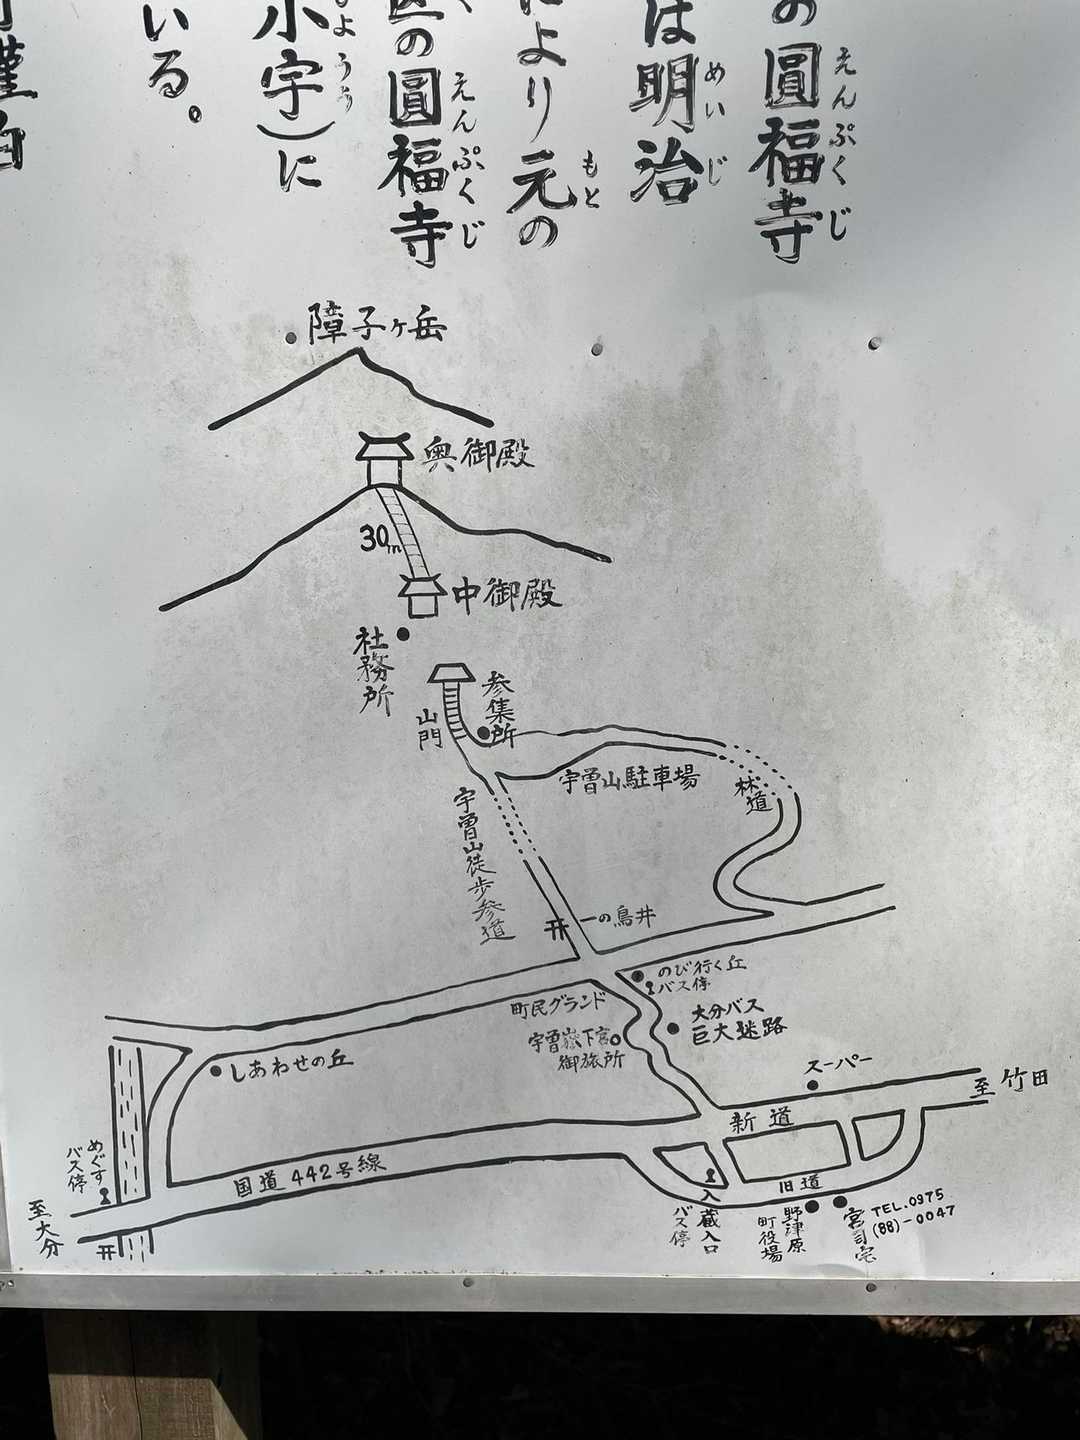 の圓福寺
えんぷくじ
は明治
めいじ
により元の
もと
区の圓福寺
えんぷくじ
小宇)に
しょうう
いる。
謹白
障子ヶ岳
奥御殿
30m
中御殿
社務所
参集所
山門
宇曽山駐車場
林道
宇曽山徒歩参道
一の鳥井
のび行く丘
バス停
町民グランド
大分バス
巨大迷路
宇曽嶽下宮
御旅所
しあわせの丘
スーパー
至竹田
新道
めぐす
バス停
国道442号線
旧道
至大分
入蔵入口
バス停
野津原
町役場
宮司宅
TEL.0975
(88)-0047